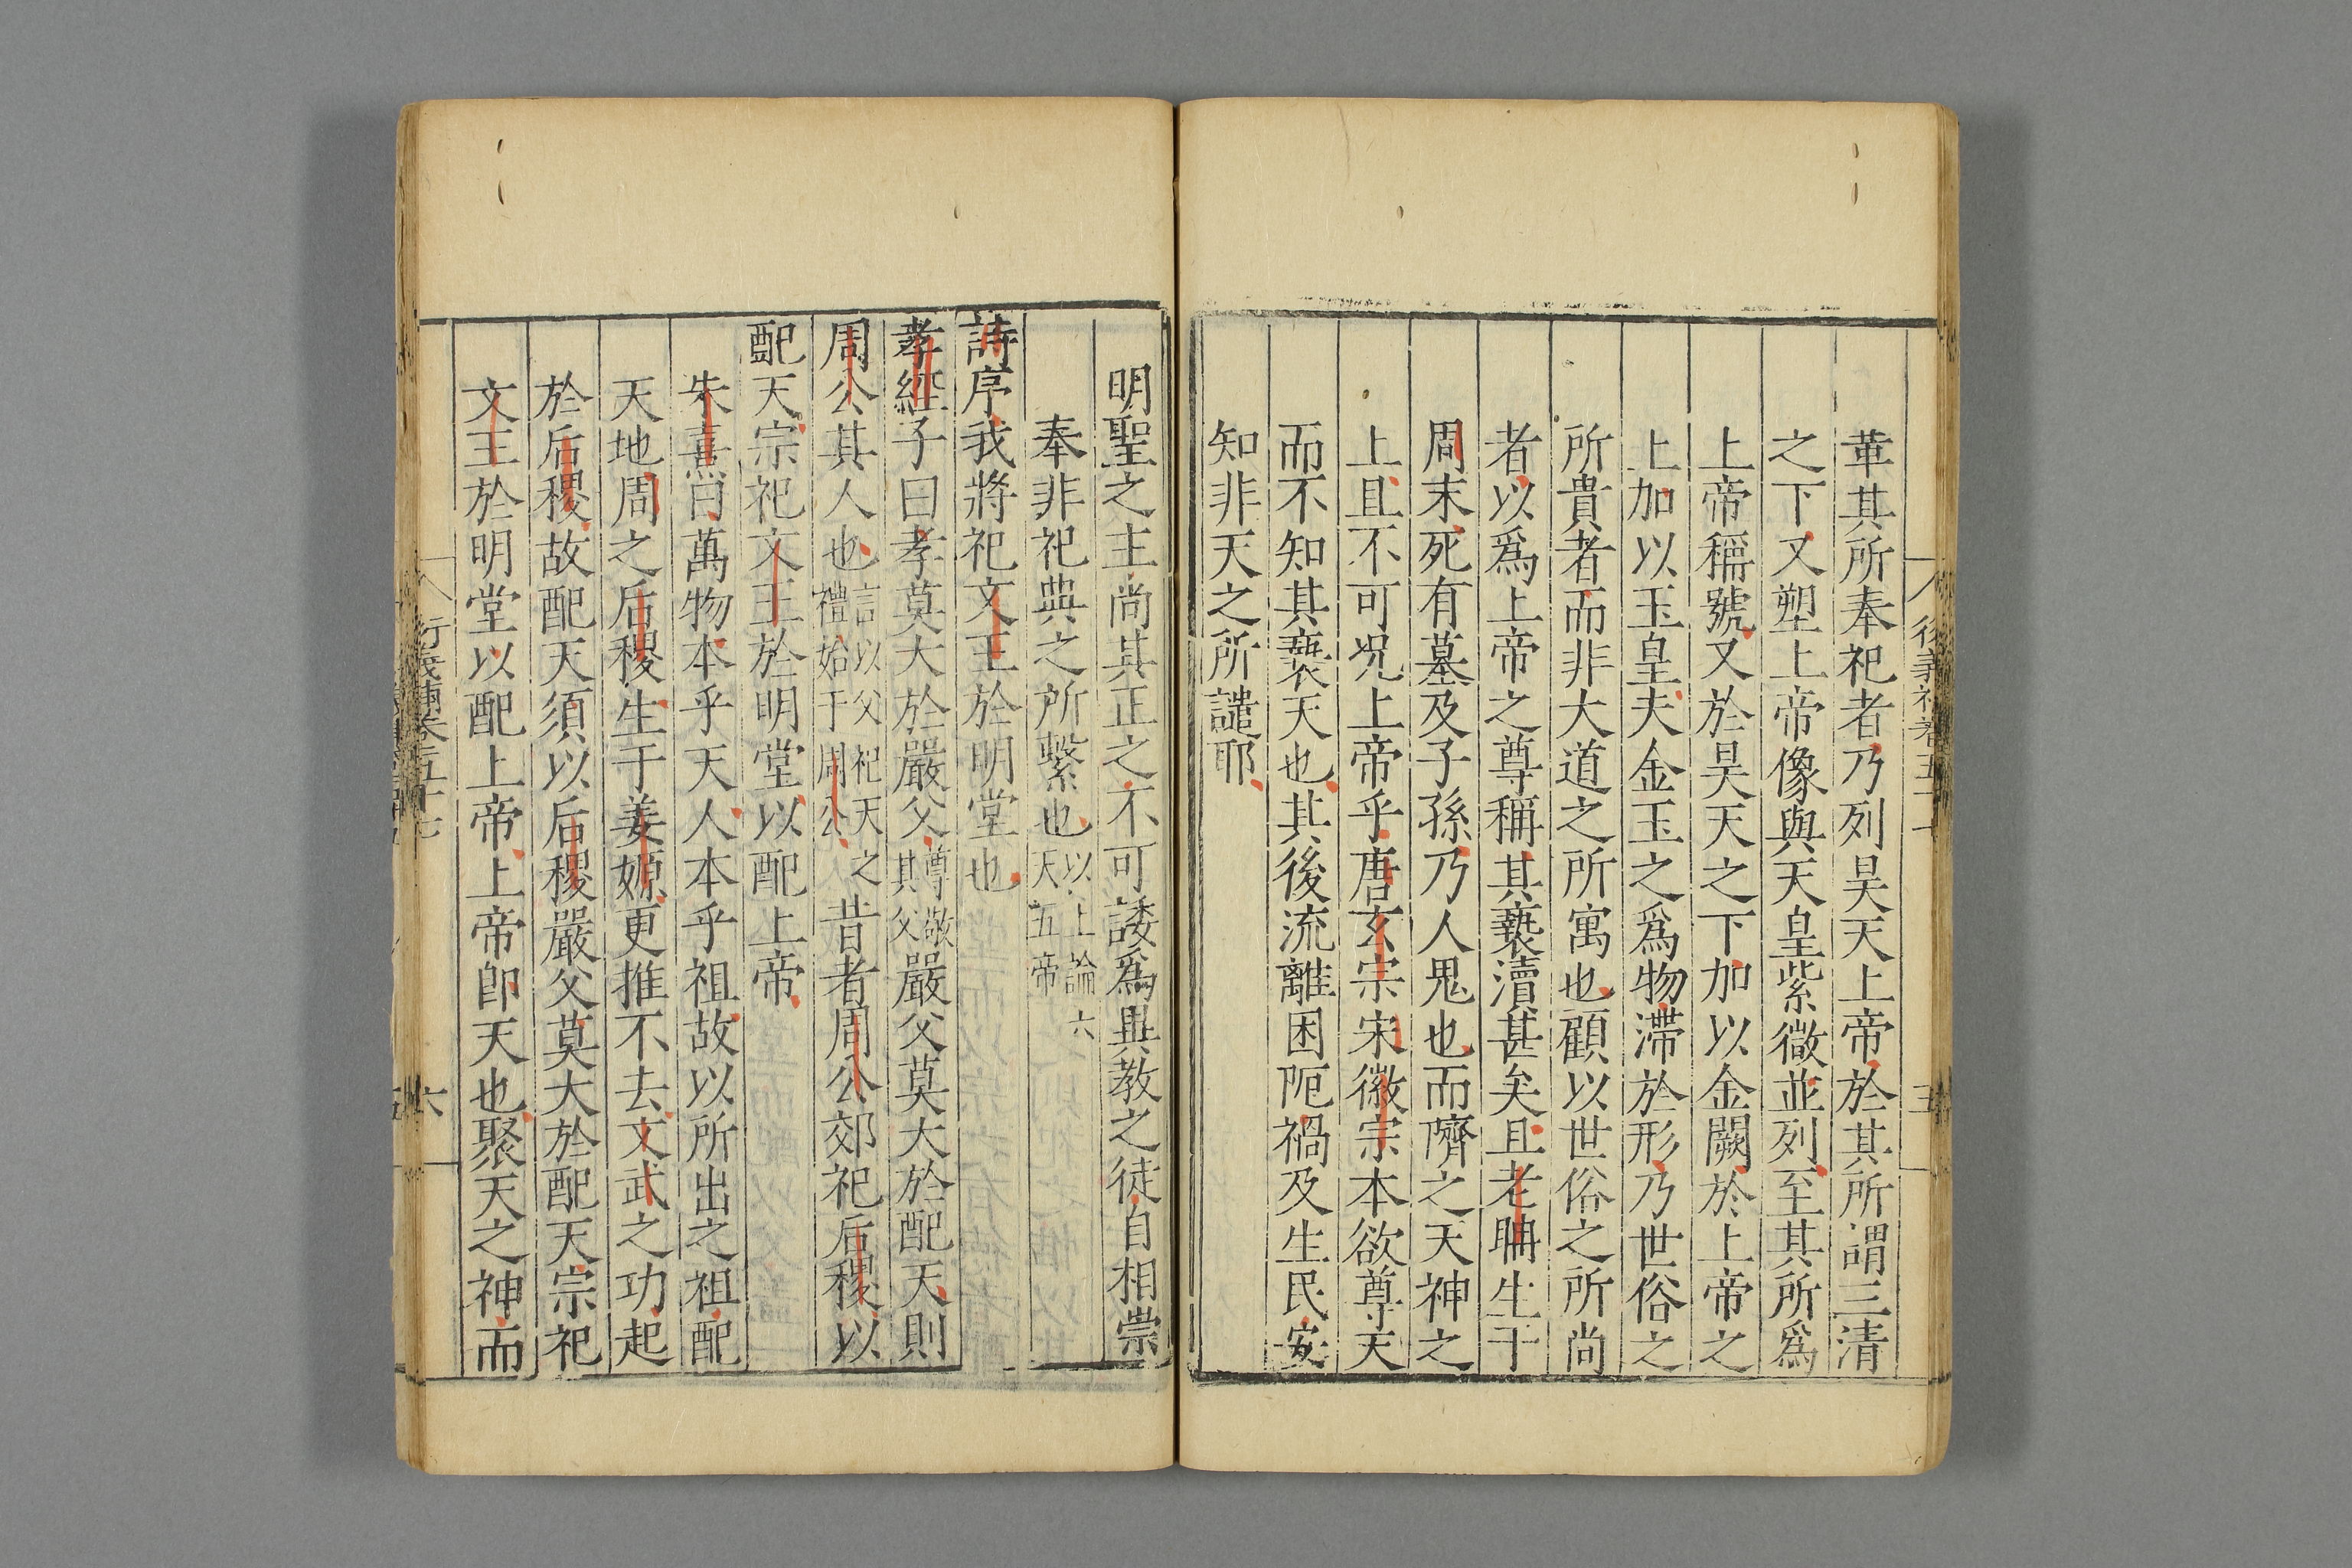 華其所奉祀者乃列昊天上帝於其所謂三清
之下又塑上帝像與天皇紫微並列至其所爲
上帝稱號又於昊天之下加以金闕於上帝之
上加以玉皇夫金玉之爲物滯於形乃世俗之
所貴者而非大道之所寓也顧以世俗之所尚
者以爲上帝之尊稱其褻瀆甚矣且老聃生于
周末死有墓及子孫乃人鬼也而隮之天神之
上且不可况上帝乎唐玄宗宋徽宗本欲尊天
而不知其褻天也其後流離困阨禍及生民安
知非天之所譴耶
明聖之主尚其正之不可諉爲異教之徒自相崇
奉非祀典之所繫也以上論六天五帝
詩序我將祀文王於明堂也
孝經子曰孝莫大於嚴父尊敬其父嚴父莫大於配天則
周公其人也言以父祀天之禮始于周公昔者周公郊祀后稷以
配天宗祀文王於明堂以配上帝
朱熹曰萬物本乎天人本乎祖故以所出之祖配
天地周之后稷生于姜嫄更推不去文武之功起
於后稷故配天須以后稷嚴父莫大於配天宗祀
文王於明堂以配上帝上帝卽天也聚天之神而
衍義補卷五十七
六